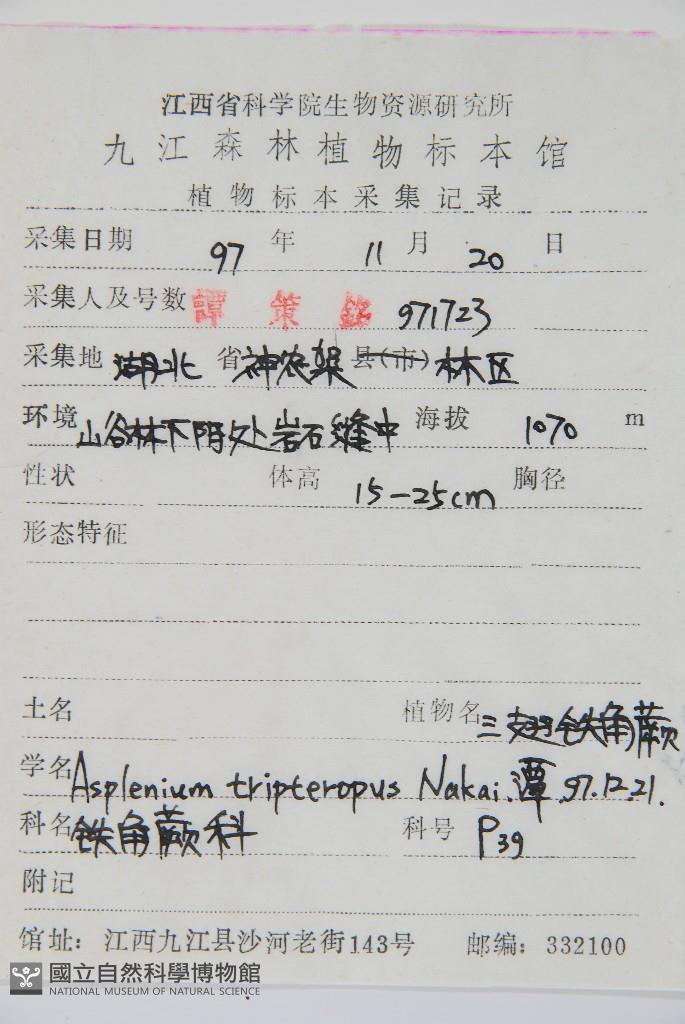 江西省科学院生物资源研究所
九江森林植物标本馆
植物标本采集记录
采集日期 97 年 11 月 20 日
采集人及号数 譚策銘 971723
采集地 湖北 省 神农架 县(市) 林区
环境 山谷林下阴处岩石缝中 海拔 1070 m
性状 体高 15-25cm 胸径
形态特征
土名 植物名 三翅铁角蕨
学名 Asplenium tripteropus Nakai. 潭 97.12.21.
科名 铁角蕨科 科号 P39
附记
馆址：江西九江县沙河老街143号 邮编：332100
國立自然科學博物館
NATIONAL MUSEUM OF NATURAL SCIENCE